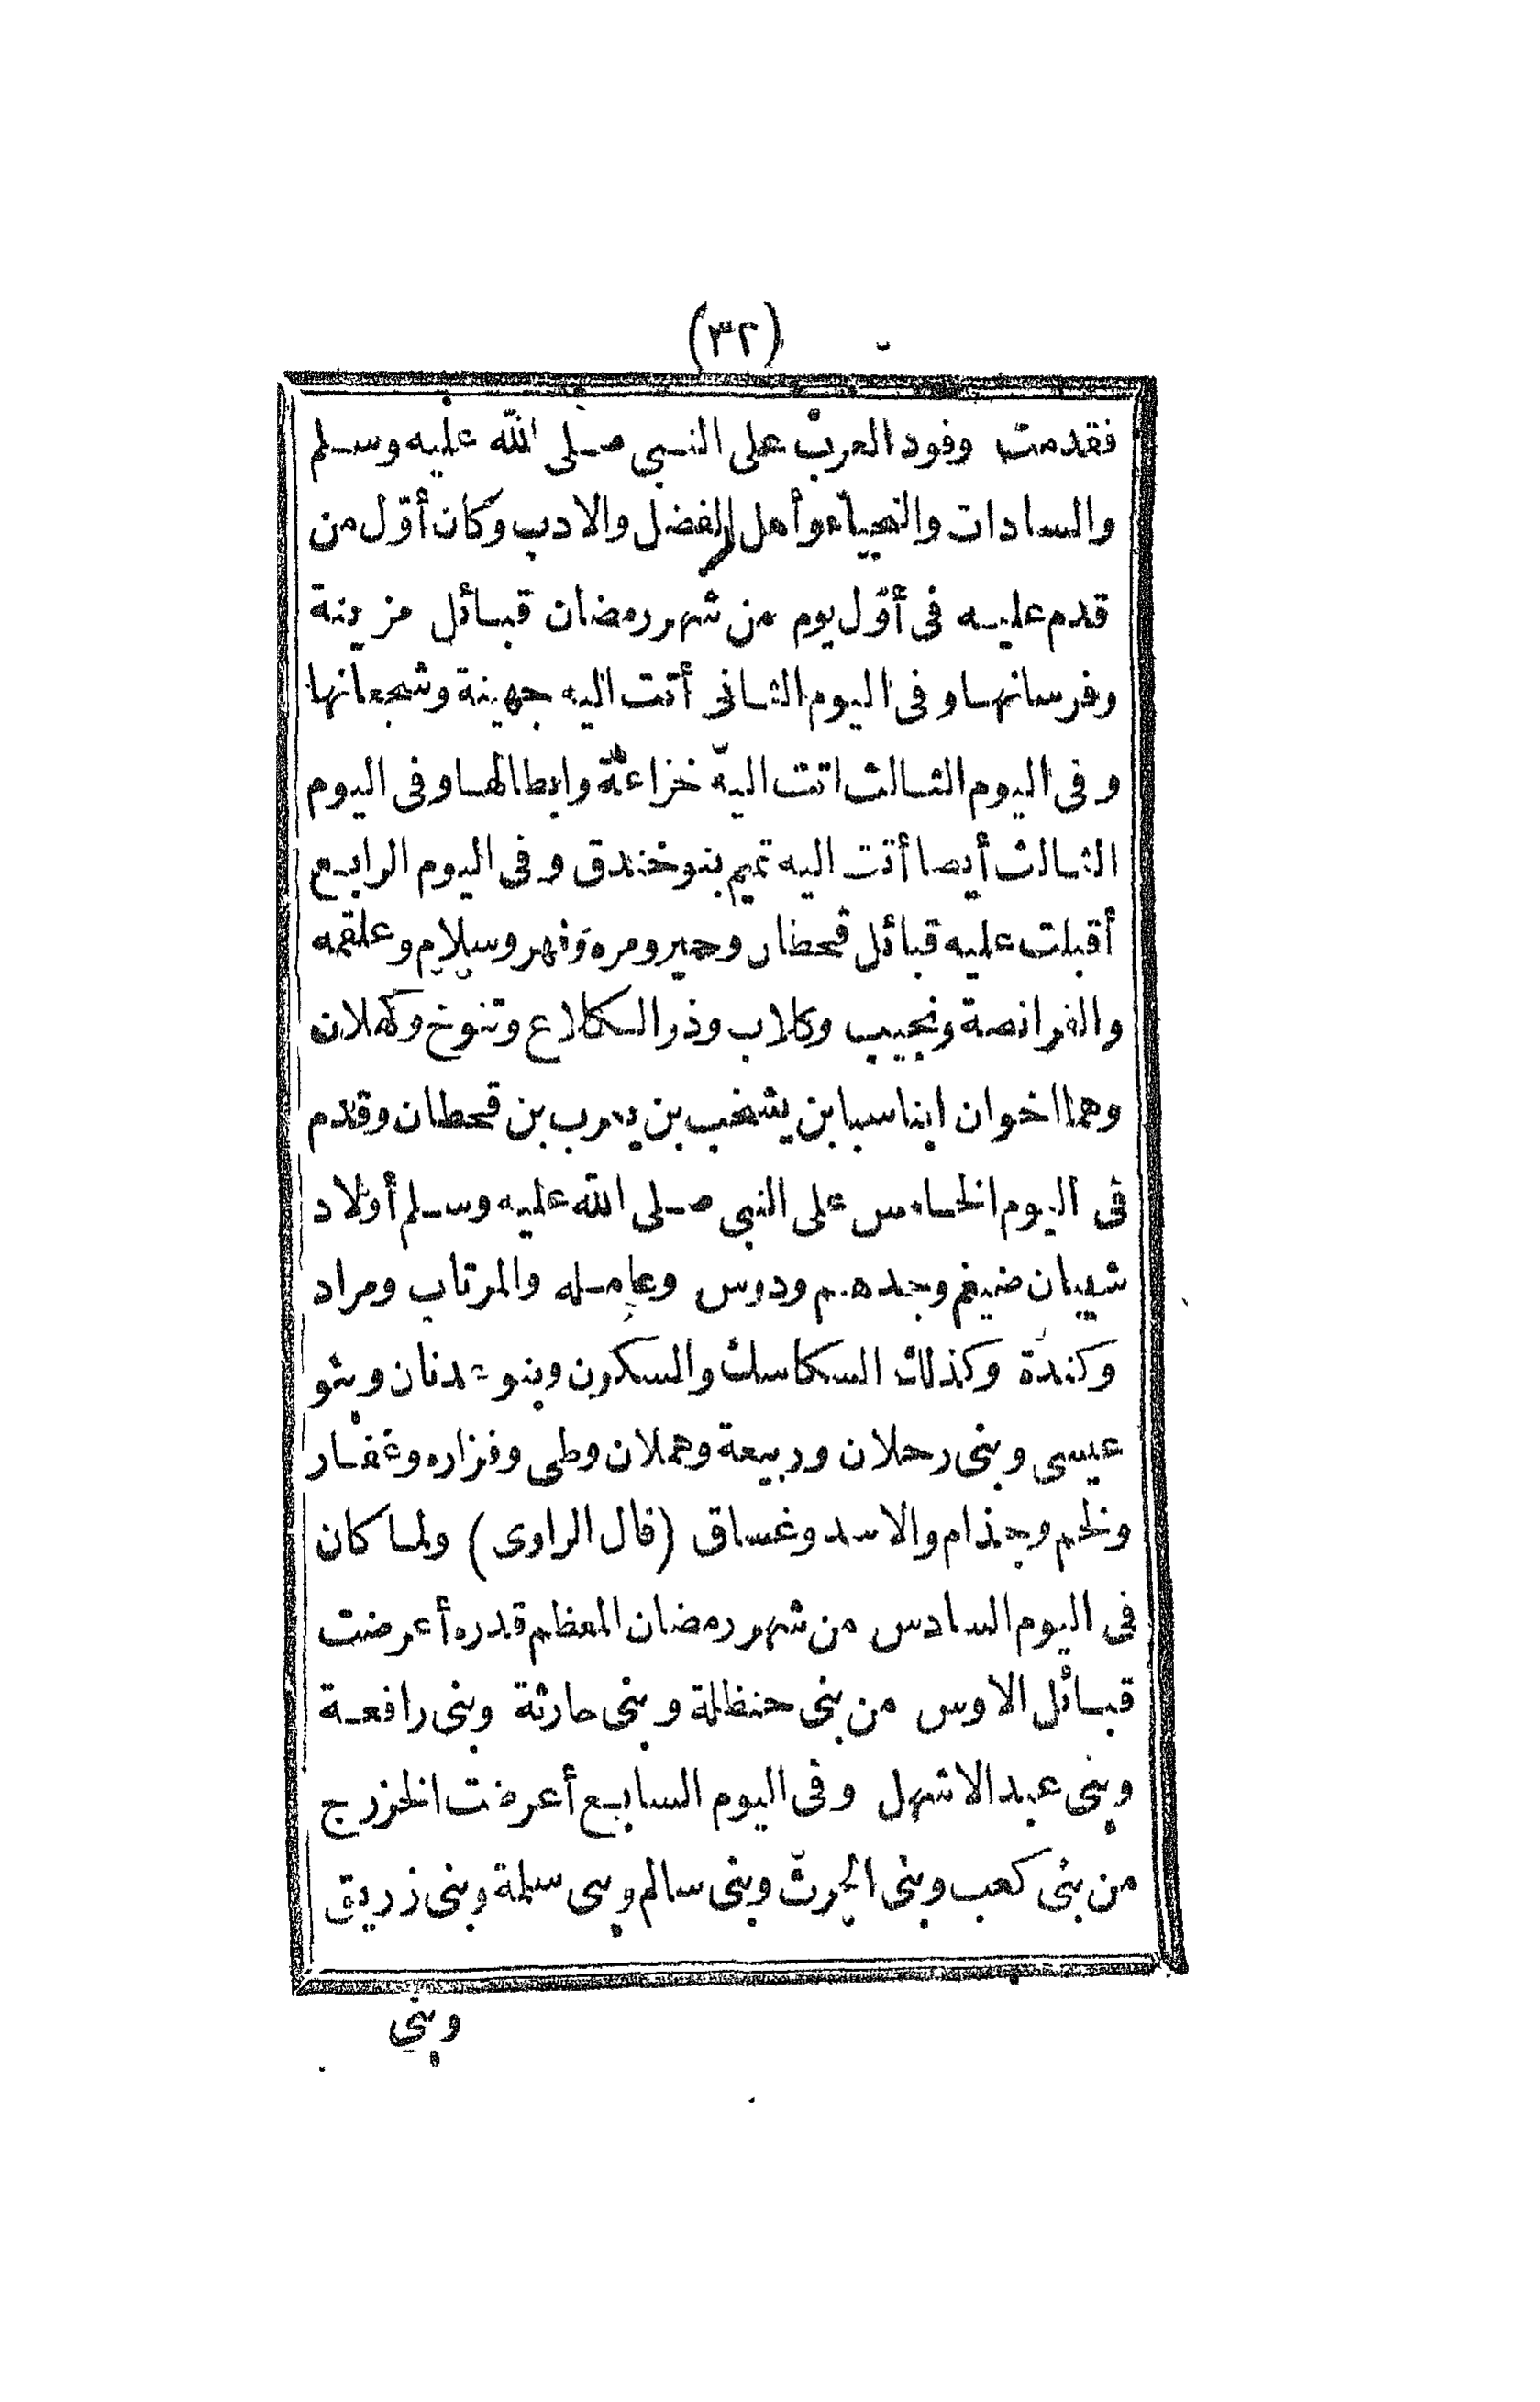 (٣٢)
فقدمت وفود العرب على النبي صلى الله عليه وسلم
والسادات والنجباء وأهل الفضل والادب وكان أوّل من
قدم عليه فى أوّل يوم من شهر رمضان قبائل مزينة
وفرسانها وفى اليوم الثانى أتت اليه جهينة وشجعانها
وفى اليوم الثالث اتت اليه خزاعة وابطالها وفى اليوم
الثالث أيضا أتت اليه تميم بنو خندق وفى اليوم الرابع
أقبلت عليه قبائل قحطان وحمير ومره ونهر وسلام وعلقمه
والفرانصة ونجيب وكلاب وذو الكلاع وتنوخ وكهلان
وهما اخوان ابنا سبا بن يشخب بن يعرب بن قحطان وقدم
فى اليوم الخامس على النبى صلى الله عليه وسلم أولاد
شيبان ضيغم وجدهم ودوس وعامله والمرتاب ومراد
وكندة وكذلك السكاسك والسكون وبنو عدنان وبنو
عيسى وبنى رحلان وربيعة وهملان وطى وفزاره وغفار
ولخم وجذام والاسد وغساق (قال الراوى) ولما كان
فى اليوم السادس من شهر رمضان المعظم قدره أعرضت
قبائل الاوس من بنى حنظلة وبنى حارثة وبنى رافعة
وبنى عبد الاشهل وفى اليوم السابع أعرضت الخزرج
من بنى كعب وبنى الحرث وبنى سالم وبنى سلمة وبنى زريق
وبنى